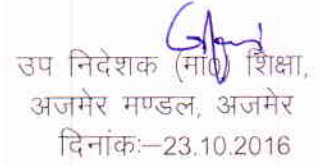 उप निदेशक (मा0) शिक्षा,
अजमेर मण्डल, अजमेर
दिनांकः–23.10.2016